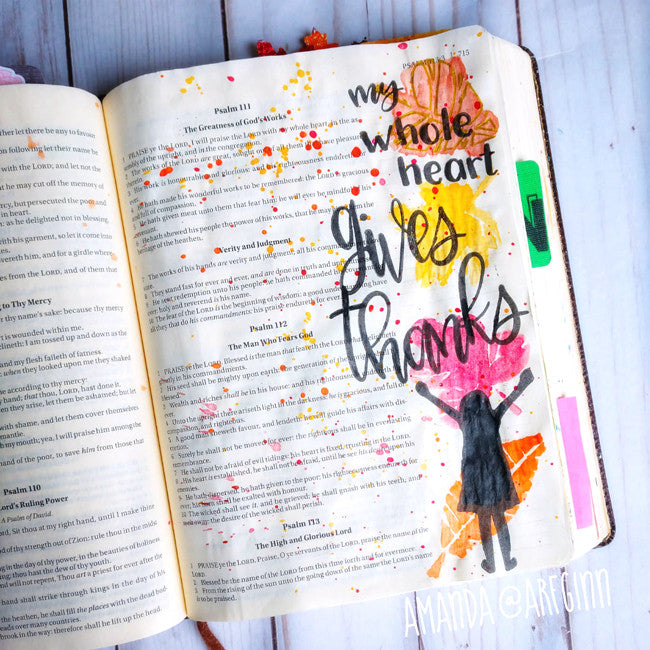 ther let there be any to favour
on following let their name be
with the LORD; and let not the
hat he may cut off the memory of
ercy, but persecuted the poor and
in heart.
: as he delighted not in blessing,
with his garment, so let it come into
overeth him, and for a girdle where
ies from the LORD, and of them that
g to Thy Mercy
r thy name's sake: because thy mercy
rt is wounded within me.
and my flesh faileth of fatness.
when they looked upon me they shaked
according to thy mercy:
hand; that thou, LORD, hast done it.
en they arise, let them be ashamed; but let
with shame, and let them cover themselves
mantle.
th my mouth; yea, I will praise him among the
hand of the poor, to save him from those that
Psalm 110
Lord's Ruling Power
A Psalm of David.
Lord, Sit thou at my right hand, until I make thine
d of thy strength out of Zion: rule thou in the midst
ing in the day of thy power, in the beauties of holiness
ning: thou hast the dew of thy youth.
and will not repent, Thou art a priest for ever after the
hand shall strike through kings in the day of his
the heathen, he shall fill the places with the dead bod-
over many countries.
brook in the way: therefore shall he lift up the head.
715
Psalm 111
The Greatness of God's Works
1 PRAISE ye the LORD. I will praise the LORD with my whole heart, in the as-
sembly of the upright, and in the congregation.
2 The works of the LORD are great, sought out of all them that have pleasure
3 His work is honourable and glorious: and his righteousness endureth for
4 He hath made his wonderful works to be remembered: the LORD is gracious
and full of compassion.
5 He hath given meat unto them that fear him: he will ever be mindful of
6 He hath shewed his people the power of his works, that he may give them the
heritage of the heathen.
Verity and Judgment
7 The works of his hands are verity and judgment; all his commandments
8 They stand fast for ever and ever, and are done in truth and uprightness.
9 He sent redemption unto his people: he hath commanded his covenant for
ever: holy and reverend is his name.
10 The fear of the LORD is the beginning of wisdom: a good understanding have
all they that do his commandments: his praise endureth for ever.
Psalm 112
The Man Who Fears God
1 PRAISE ye the LORD. Blessed is the man that feareth the LORD, that delighteth
greatly in his commandments.
2 His seed shall be mighty upon earth: the generation of the upright
3 Wealth and riches shall be in his house: and his righteousness endureth for
ever.
4 Unto the upright there ariseth light in the darkness: he is gracious, and full of
compassion, and righteous.
5 A good man sheweth favour, and lendeth: he will guide his affairs with dis-
6 Surely he shall not be moved for ever: the righteous shall be in everlasting
remembrance.
7 He shall not be afraid of evil tidings: his heart is fixed, trusting in the LORD.
8 His heart is established, he shall not be afraid, until he see his desire upon his
9 He hath dispersed, he hath given to the poor; his righteousness endureth for
ever; his horn shall be exalted with honour.
10 The wicked shall see it, and be grieved; he shall gnash with his teeth, and
melt away: the desire of the wicked shall perish.
Psalm 113
The High and Glorious Lord
1 PRAISE ye the LORD. Praise, O ye servants of the LORD, praise the name of the
LORD.
2 Blessed be the name of the LORD from this time forth and for evermore.
3 From the rising of the sun unto the going down of the same the LORD's name
is to be praised.
my
whole
heart
gives
thanks
AMANDA @ARFGINN